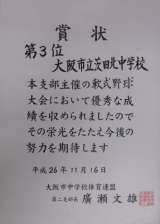 賞状
第3位
大阪市立芝田北中学校
本支部主催の軟式野球
大会において優秀な成
績を収められましたので
その栄光をたたえ今後の
努力を期待します
平成26年11月16日
大阪市中学校体育連盟
第二支部長 廣瀬文雄